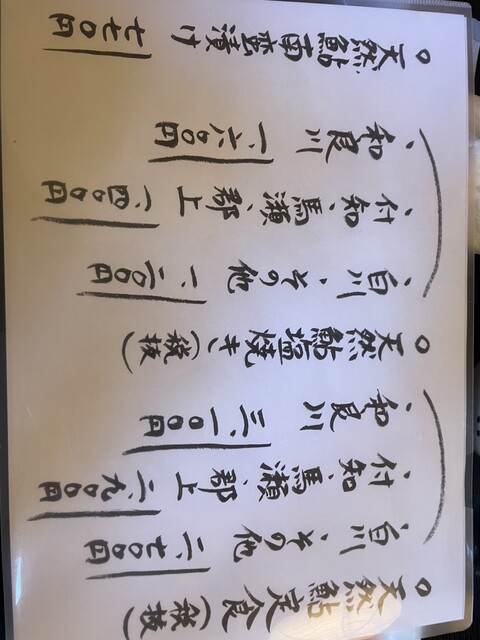 ○天然鮎定食(税抜)
・白川・その他 二、七〇〇円
・付知・馬瀬・郡上 二、九〇〇円
・和良川 三、一〇〇円
○天然鮎塩焼き(税抜)
・白川・その他 一、二〇〇円
・付知・馬瀬・郡上 一、四〇〇円
・和良川 一、六〇〇円
○天然鮎南蛮漬け 七七〇円